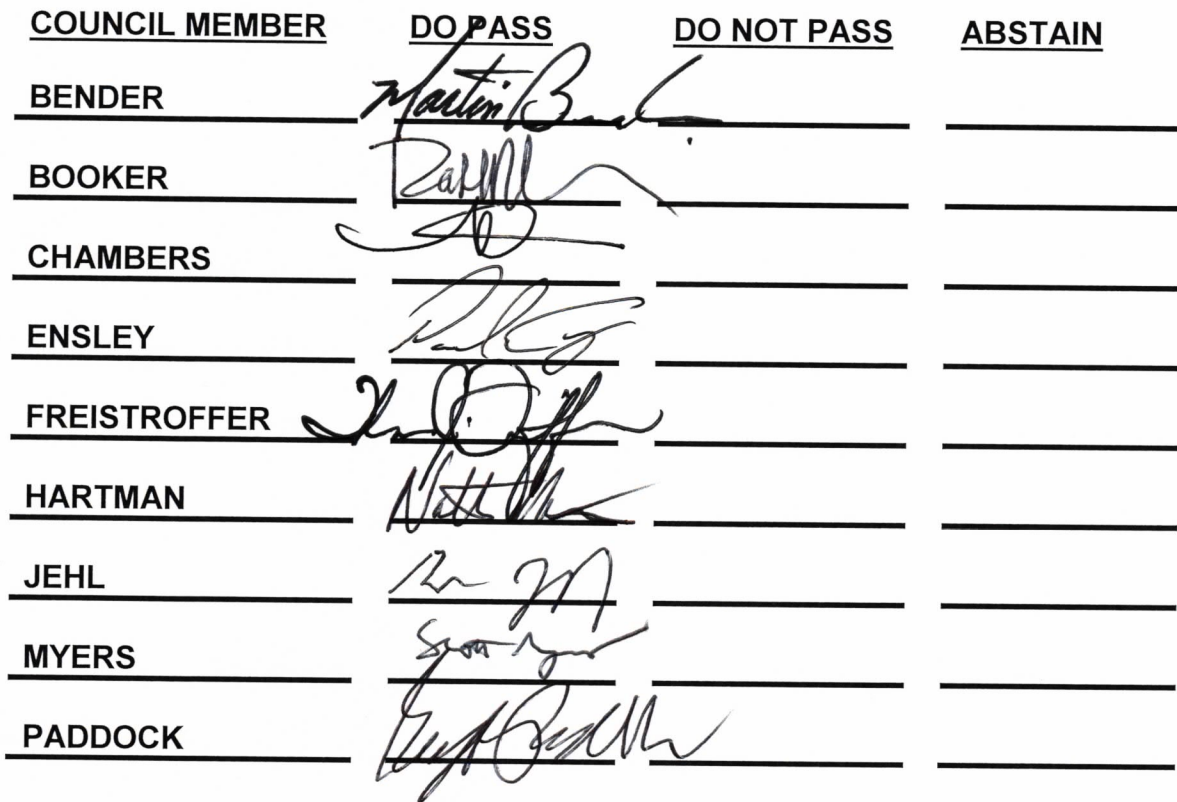 COUNCIL MEMBER DO PASS DO NOT PASS ABSTAIN
BENDER Martin Bender
BOOKER
CHAMBERS
ENSLEY Paul
FREISTROFFER
HARTMAN
JEHL
MYERS Scott Myers
PADDOCK